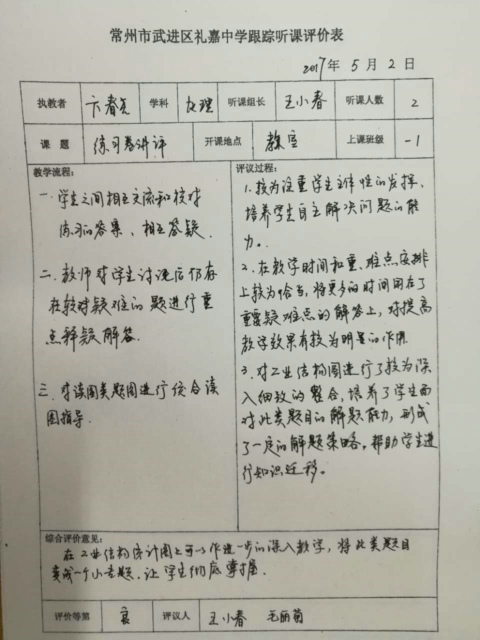 常州市武进区礼嘉中学跟踪听课评价表
2017年 5 月 2 日
执教者 学科 地理 听课组长 王小春 听课人数 2
课 题 练习卷讲评 开课地点 教室 上课班级
教学流程：
一. 学生之间相互交流和校对
练习的答案，相互答疑.
二. 教师对学生讨论后仍存
在较对疑难的题进行重
点释疑解答.
三. 对读图类题图进行综合读
图指导.
评议过程：
1. 较为注重学生主体性的发挥，
培养学生自主解决问题的能
力。
2. 在教学时间和重、难点安排
上较为恰当，将更多的时间用在了
重要疑难点的解答上，对提高
教学效果有较为明显的作用.
3. 对工业结构图进行了较为深
入细致的整合，培养了学生面
对此类题目的解题能力，形成
了一定的解题策略。帮助学生进
行知识迁移。
综合评价意见：
在工业结构统计图上可以作进一步的深入教学，将此类题目
变成一个小专题，让学生彻底掌握.
评价等第 良 评议人 王小春 毛丽菊